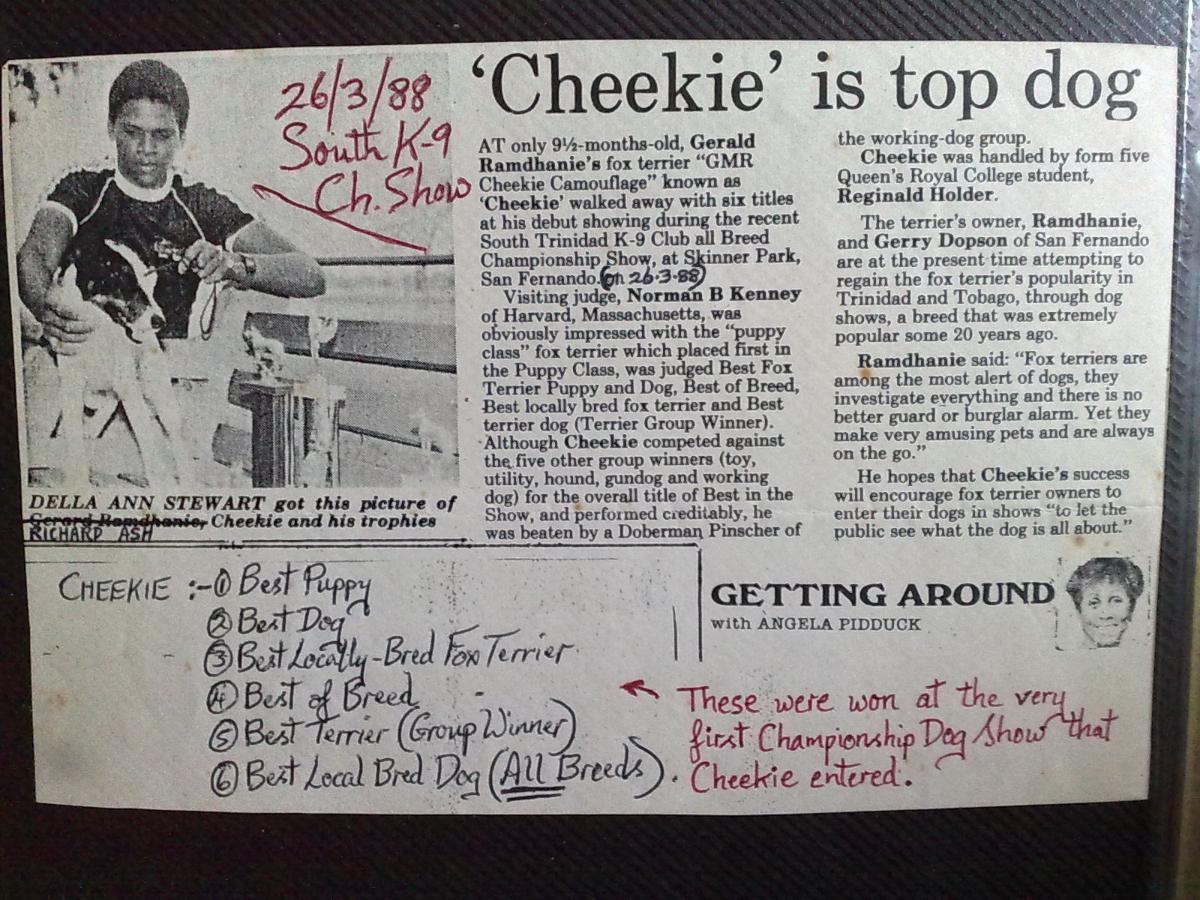 26/3/88
South K-9
Ch. Show
DELLA ANN STEWART got this picture of
Gerard Ramdhanie, Cheekie and his trophies
RICHARD ASH
'Cheekie' is top dog
AT only 9½-months-old, Gerald
Ramdhanie's fox terrier "GMR
Cheekie Camouflage" known as
'Cheekie' walked away with six titles
at his debut showing during the recent
South Trinidad K-9 Club all Breed
Championship Show, at Skinner Park,
San Fernando. (on 26-3-88)
Visiting judge, Norman B Kenney
of Harvard, Massachusetts, was
obviously impressed with the "puppy
class" fox terrier which placed first in
the Puppy Class, was judged Best Fox
Terrier Puppy and Dog, Best of Breed,
Best locally bred fox terrier and Best
terrier dog (Terrier Group Winner).
Although Cheekie competed against
the five other group winners (toy,
utility, hound, gundog and working
dog) for the overall title of Best in the
Show, and performed creditably, he
was beaten by a Doberman Pinscher of
the working-dog group.
Cheekie was handled by form five
Queen's Royal College student,
Reginald Holder.
The terrier's owner, Ramdhanie,
and Gerry Dopson of San Fernando
are at the present time attempting to
regain the fox terrier's popularity in
Trinidad and Tobago, through dog
shows, a breed that was extremely
popular some 20 years ago.
Ramdhanie said: "Fox terriers are
among the most alert of dogs, they
investigate everything and there is no
better guard or burglar alarm. Yet they
make very amusing pets and are always
on the go."
He hopes that Cheekie's success
will encourage fox terrier owners to
enter their dogs in shows "to let the
public see what the dog is all about."
CHEEKIE :- ① Best Puppy
② Best Dog
③ Best Locally-Bred Fox Terrier
④ Best of Breed
⑤ Best Terrier (Group Winner)
⑥ Best Local Bred Dog (All Breeds).
GETTING AROUND
with ANGELA PIDDUCK
These were won at the very
first Championship Dog Show that
Cheekie entered.